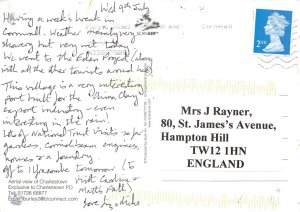 Wed 9th July
Having a week's break in
Cornwall. Weather mainly very
showery but very wet today.
We went to the Eden Project (along
with all the other tourists around here)
This village is a very interesting
port built for the China Clay
export industry - even
interesting in the rain!
Lots of National Trust visits so far
gardens, Cornish beam engines,
houses & a foundry
off to Ilfracombe tomorrow (to
visit Caroline &
Matts Path)
love
2nd
Mrs J Rayner,
80, St. James's Avenue,
Hampton Hill
TW12 1HN
ENGLAND
Aerial view of Charlestown
Exclusive to Charlestown PO
Tel: 01726 66877